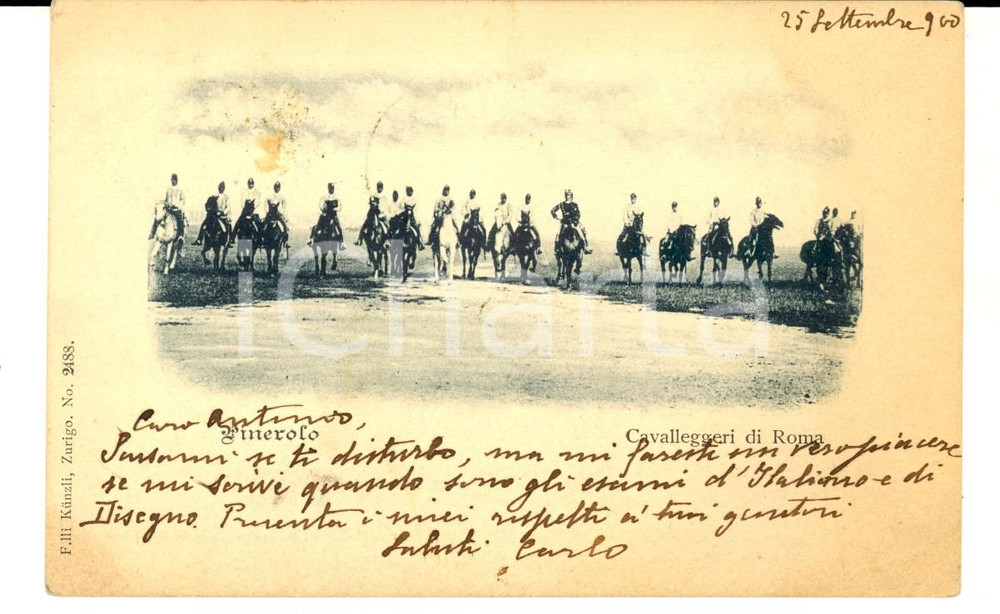 25 Settembre 900
icharta
Caro Antonio,
Pinerolo
Cavalleggeri di Roma
Scusami se ti disturbo, ma mi faresti un vero piacere
se mi scrivi quando sono gli esami d'Italiano e di
Disegno. Presenta i miei rispetti a' tuoi genitori
Saluti Carlo
F.lli Künzli, Zurigo. No. 2488.